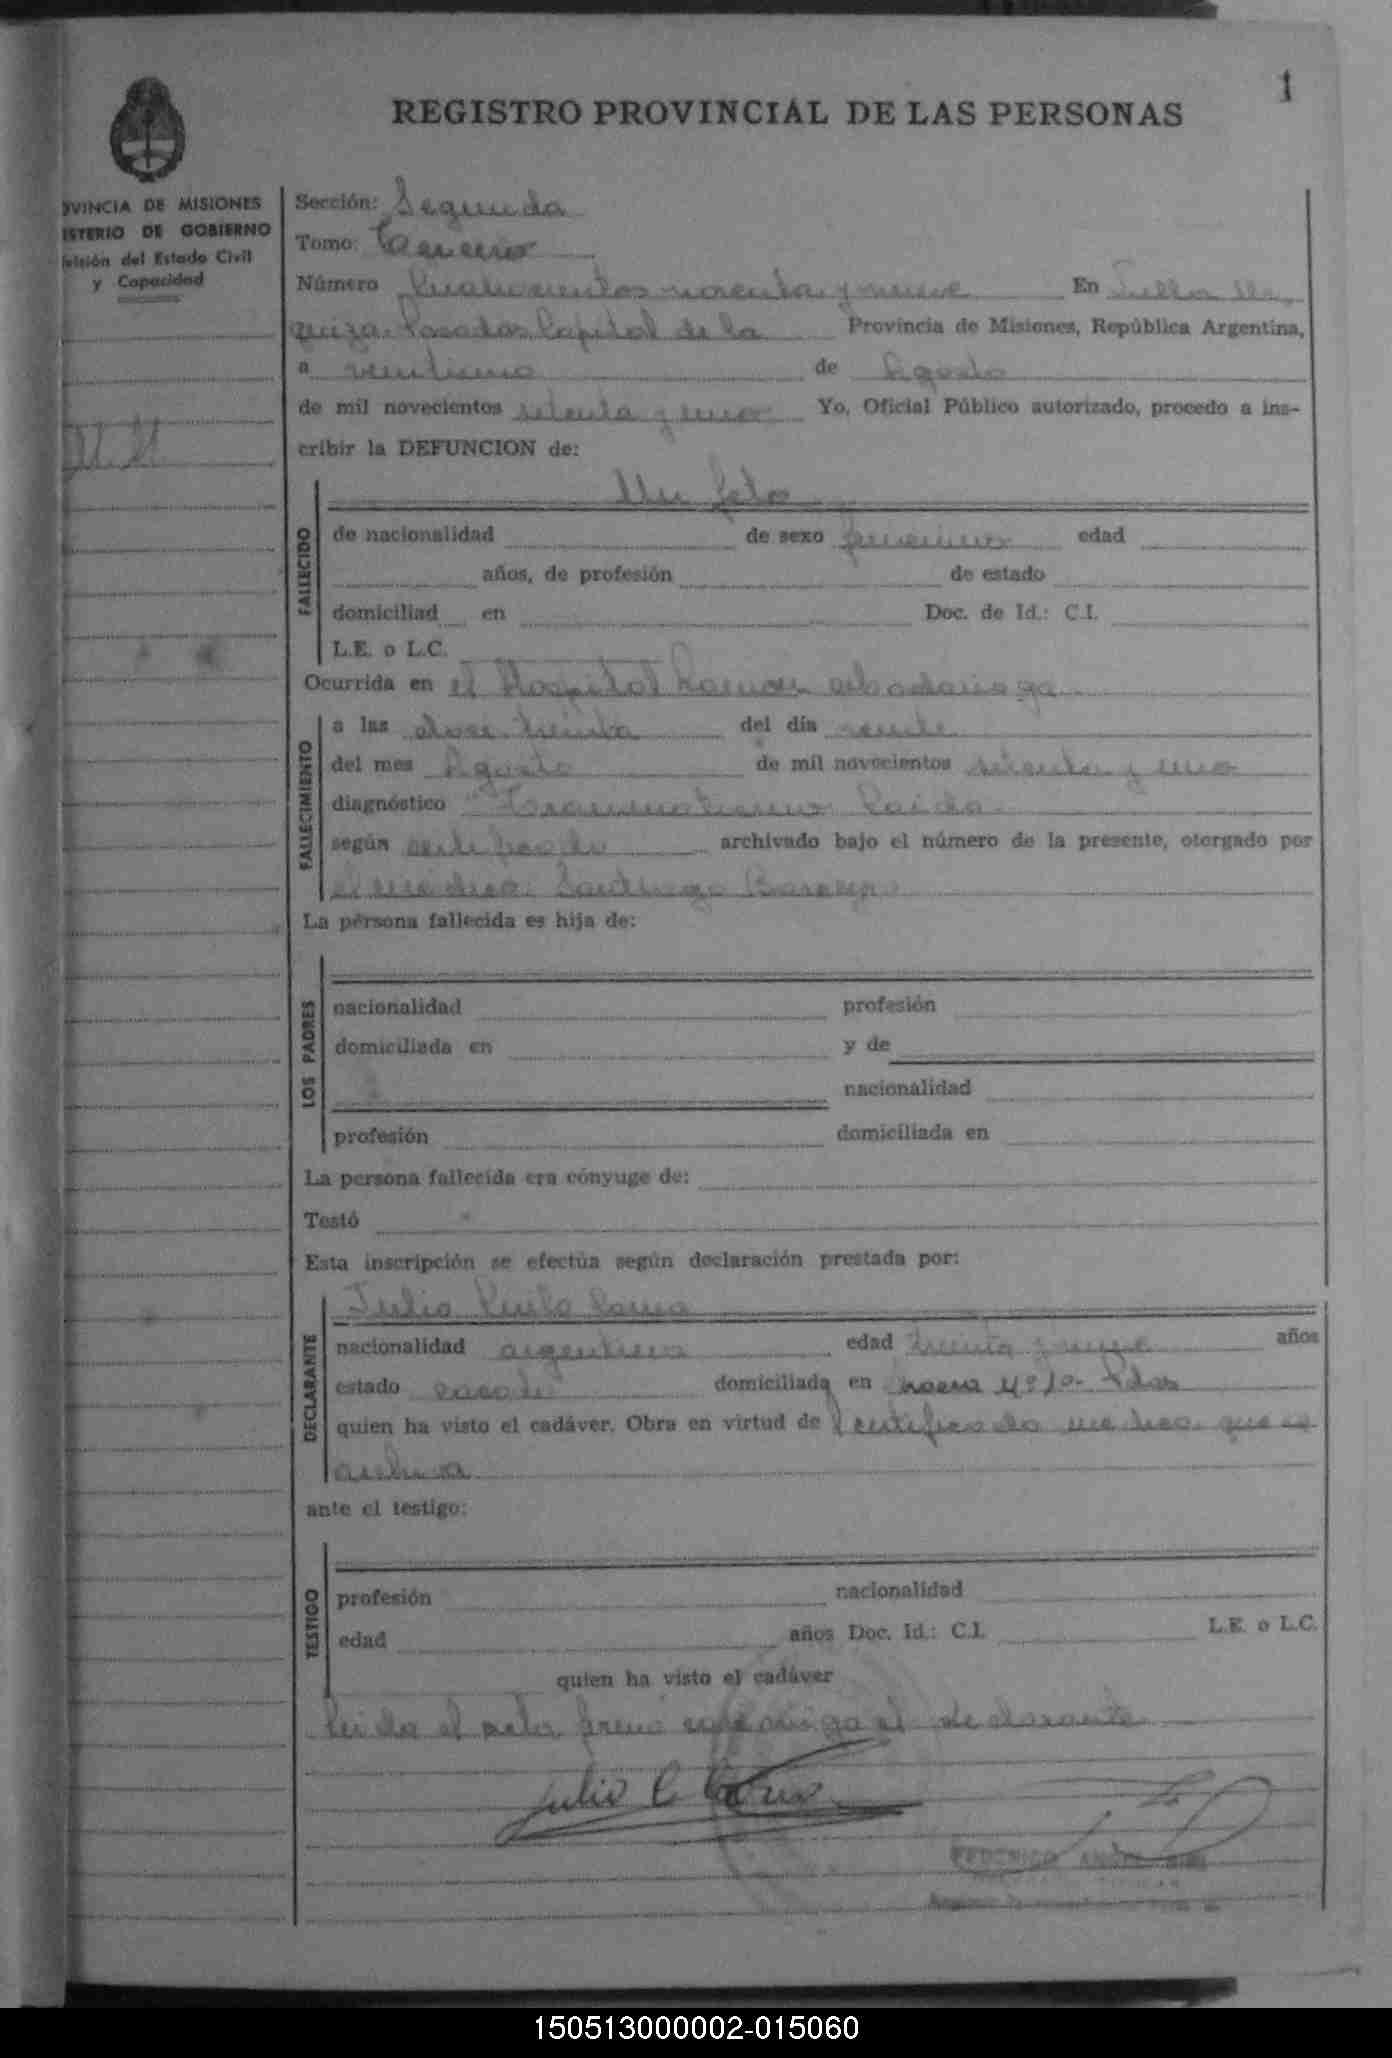 1
REGISTRO PROVINCIAL DE LAS PERSONAS
OVINCIA DE MISIONES
ISTERIO DE GOBIERNO
del Estado Civil
y Capacidad
Sección: Segunda
Tomo: Tercero
Número Cuatrocientos noventa y nueve En Villa Ur
quiza Posadas Capital de la Provincia de Misiones, República Argentina,
a ventiuno de Agosto
de mil novecientos setenta y uno Yo, Oficial Público autorizado, procedo a ins-
cribir la DEFUNCION de:
N.N.
Un feto
FALLECIDO
de nacionalidad de sexo femenino edad
años, de profesión de estado
domiciliad en Doc. de Id.: C.I.
L.E. o L.C.
Ocurrida en el Hospital Ramon Madariaga
FALLECIMIENTO
a las doce treinta del día veinte
del mes Agosto de mil novecientos setenta y uno
diagnóstico Traumatismo Caida
según certificado archivado bajo el número de la presente, otorgado por
el medico Santiago
La persona fallecida es hija de:
LOS PADRES
nacionalidad profesión
domiciliada en y de
nacionalidad
profesión domiciliada en
La persona fallecida era cónyuge de:
Testó
Esta inscripción se efectúa según declaración prestada por:
DECLARANTE
Julio
nacionalidad argentino edad treinta y nueve años
estado casado domiciliada en N° 10 Pdas
quien ha visto el cadáver. Obra en virtud de certificado medico que se
archiva
ante el testigo:
TESTIGO
profesión nacionalidad
edad años Doc. Id.: C.I. L.E. o L.C.
quien ha visto el cadáver
Leida el acta firma conmigo el declarante
Julio C
FEDERICO
150513000002-015060